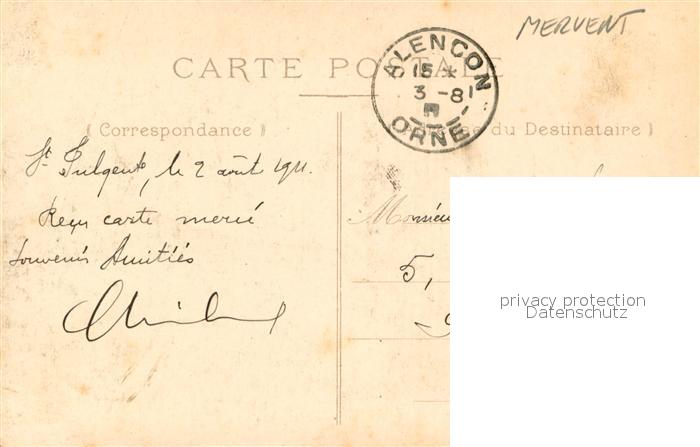 MERVENT
CARTE POSTALE
ALENCON
15 *
3 - 8
ORNE
( Correspondance )
du Destinataire )
St Fulgent, le 2 août 1911.
Reçu carte merci
Souvenirs Amitiés
Monsieur
5,
privacy protection
Datenschutz